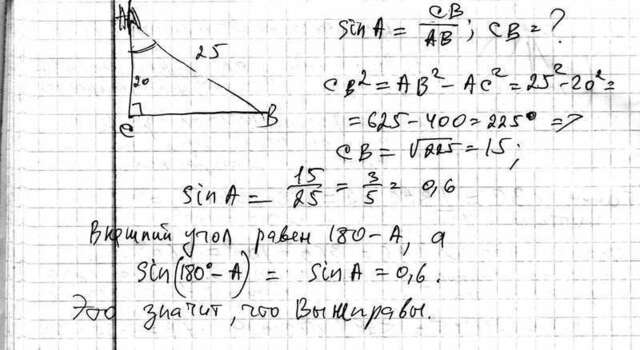 A
25
20
C
B
sin A = CB/AB; CB = ?
CB² = AB² - AC² = 25² - 20² =
= 625 - 400 = 225 =>
CB = √225 = 15;
sin A = 15/25 = 3/5 = 0,6
Внешний угол равен 180 - A, а
sin(180° - A) = sin A = 0,6.
Это значит, что Вы правы.